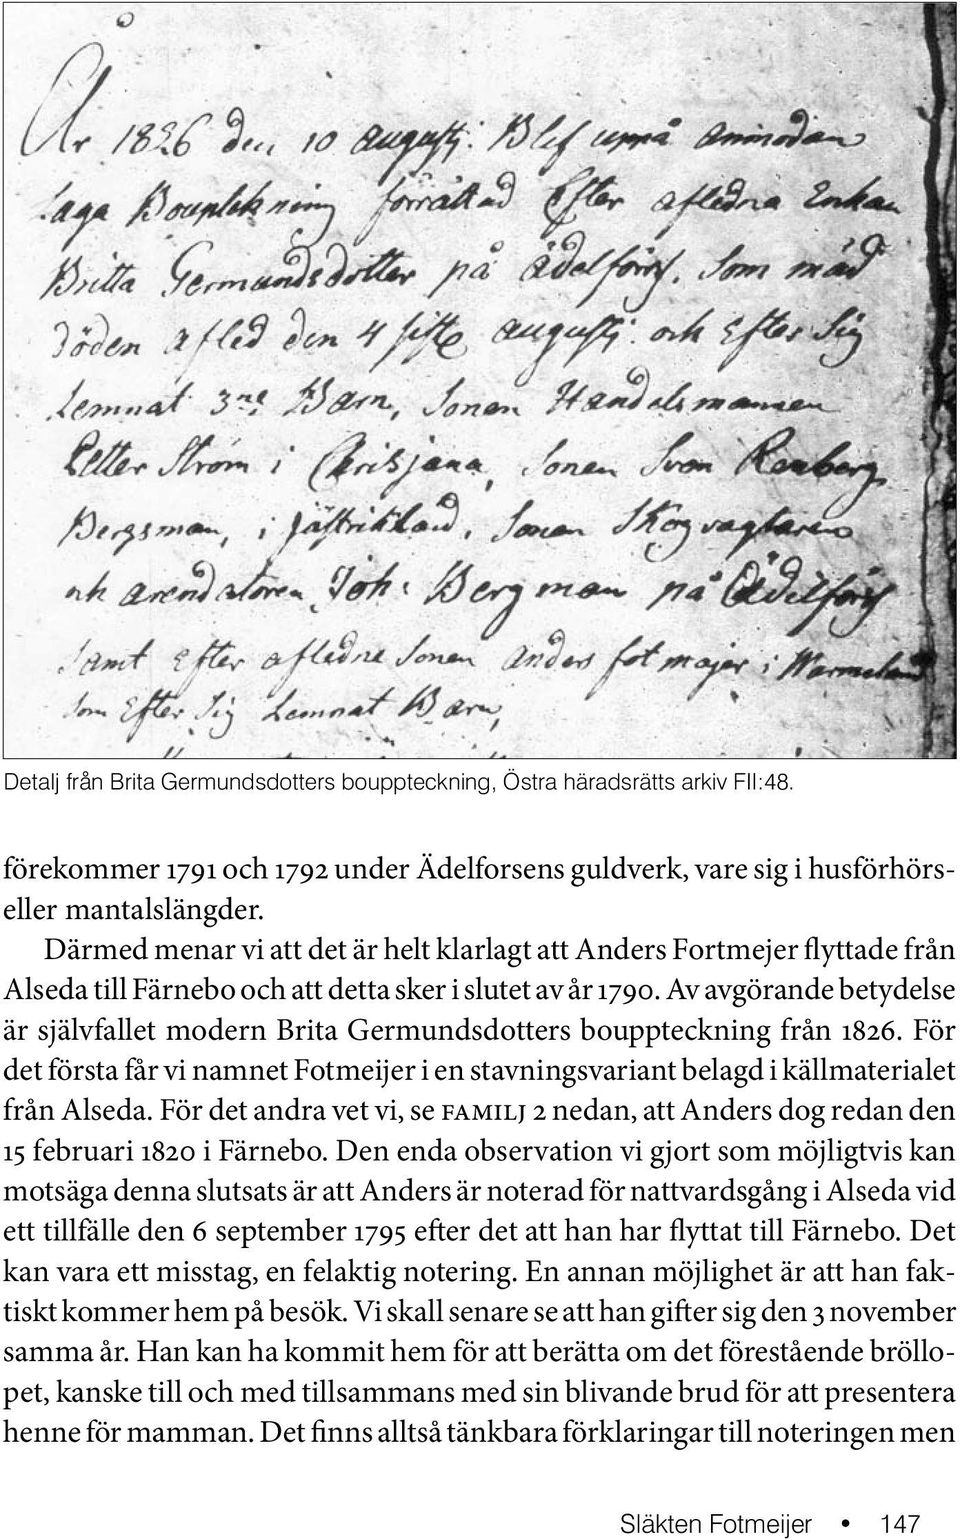 År 1826 den 10 augusti. Blef uppå anmodan
Laga Boupteckning förrättad Efter afledna Enkan
Britta Germundsdotter på Ädelfors, Som mäd
döden afled den 4 siste augusti och Efter Sig
Lemnat 3ne Barn, Sonen Handelsmannen
Petter Ström i Chrisjana, Sonen Sven Renberg
Bergsman, i jästrikland, Sonen Skogvagtaren
och arendatoren Joh: Bergman på Ädelfors
Samt Efter afledne Sonen Anders fotmajer i Warmeland
som Efter Sig Lemnat Barn,
Detalj från Brita Germundsdotters bouppteckning, Östra häradsrätts arkiv FII:48.
förekommer 1791 och 1792 under Ädelforsens guldverk, vare sig i husförhörs-
eller mantalslängder.
Därmed menar vi att det är helt klarlagt att Anders Fortmejer flyttade från
Alseda till Färnebo och att detta sker i slutet av år 1790. Av avgörande betydelse
är självfallet modern Brita Germundsdotters bouppteckning från 1826. För
det första får vi namnet Fotmeijer i en stavningsvariant belagd i källmaterialet
från Alseda. För det andra vet vi, se FAMILJ 2 nedan, att Anders dog redan den
15 februari 1820 i Färnebo. Den enda observation vi gjort som möjligtvis kan
motsäga denna slutsats är att Anders är noterad för nattvardsgång i Alseda vid
ett tillfälle den 6 september 1795 efter det att han har flyttat till Färnebo. Det
kan vara ett misstag, en felaktig notering. En annan möjlighet är att han fak-
tiskt kommer hem på besök. Vi skall senare se att han gifter sig den 3 november
samma år. Han kan ha kommit hem för att berätta om det förestående bröllo-
pet, kanske till och med tillsammans med sin blivande brud för att presentera
henne för mamman. Det finns alltså tänkbara förklaringar till noteringen men
Släkten Fotmeijer • 147